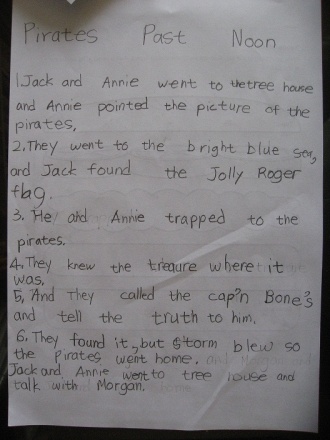 Pirates Past Noon
1. Jack and Annie went to the tree house
and Annie pointed the picture of the
pirates,
2. They went to the bright blue sea,
and Jack found the Jolly Roger
flag.
3. He and Annie trapped to the
pirates.
4. They knew the treaqure where it
was.
5, And They called the cap'n Bone's
and tell the truth to him.
6. They found it, but storm blew so
the Pirates went home.
Jack and Annie went to tree house and
talk with Morgan.